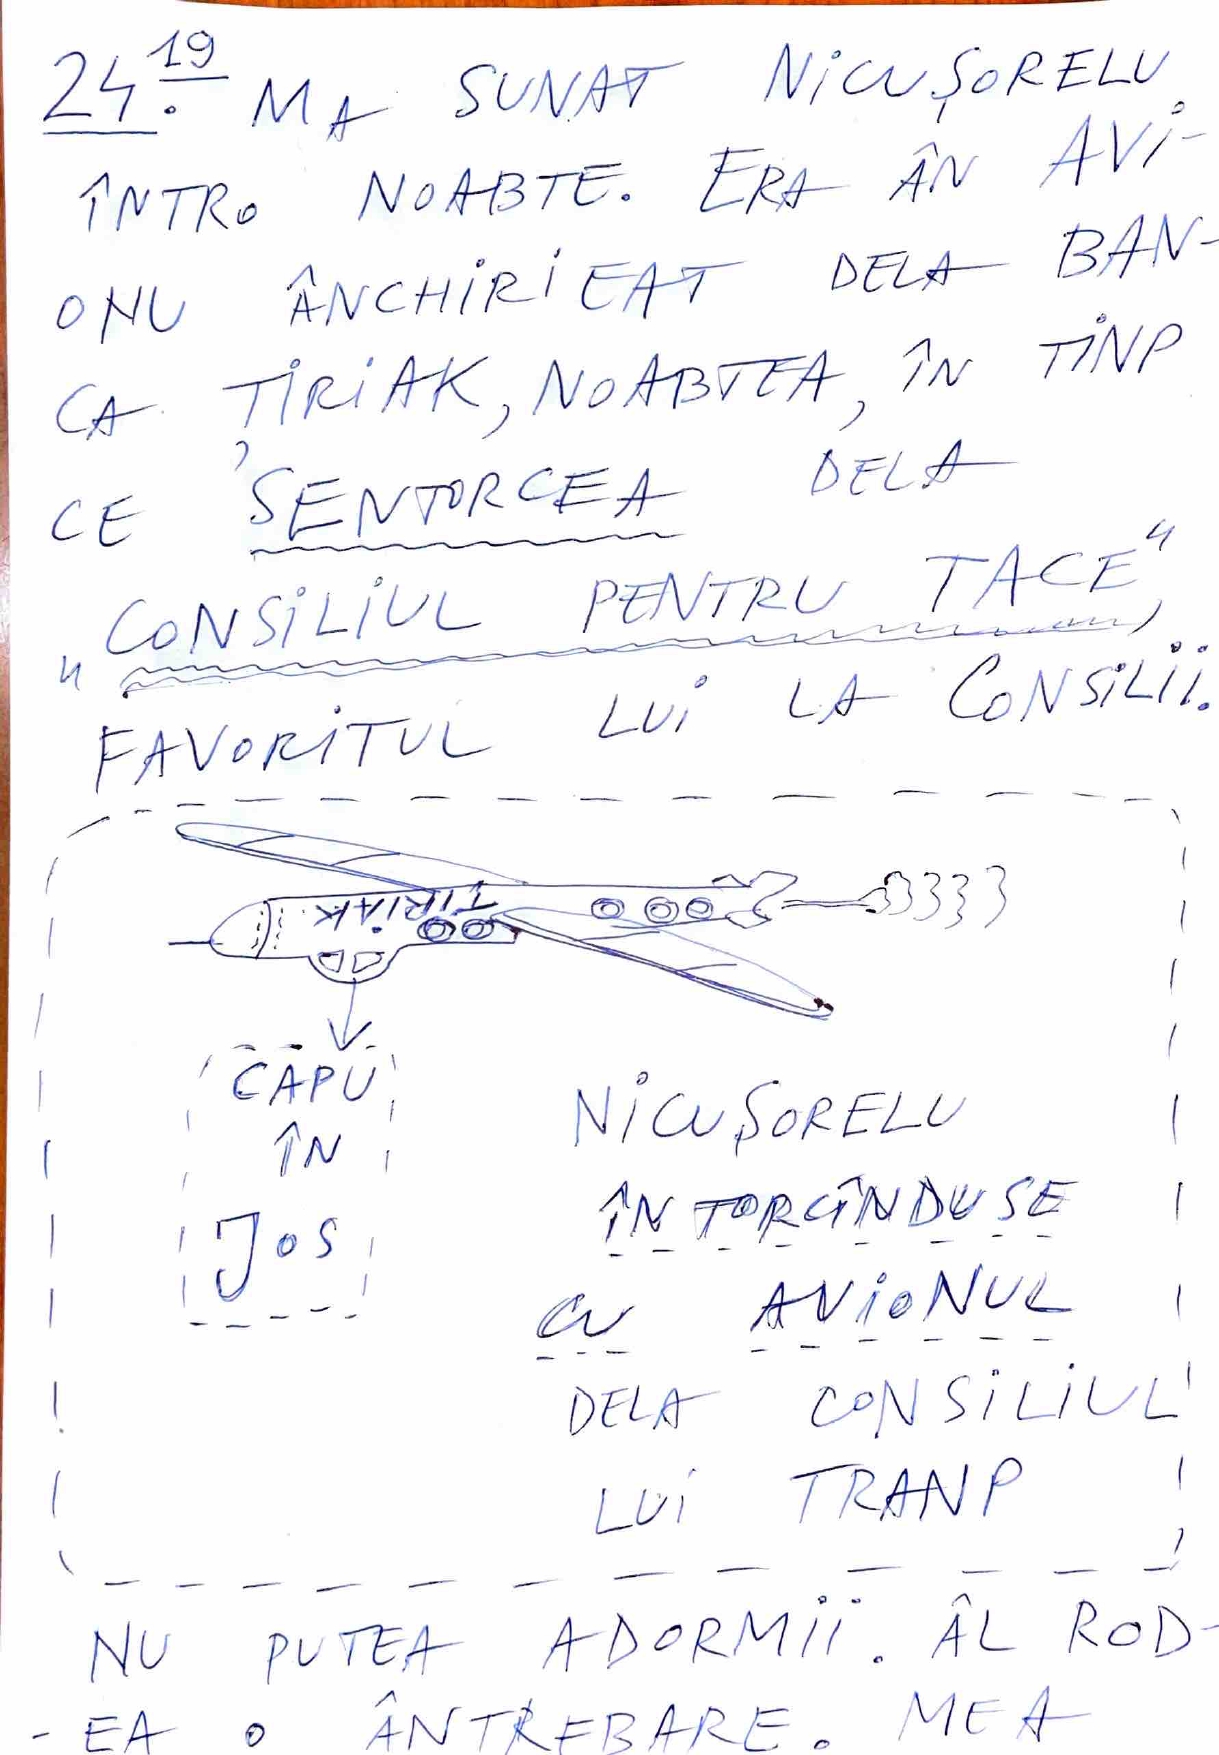 24.19 MA SUNAT NICUȘORELU
ÎNTRO NOABTE. ERA ÂN AVI-
ONU ÂNCHIRIEAT DELA BAN-
CA ȚIRIAK, NOABTEA, ÎN TINP
CE SENTORCEA DELA
"CONSILIUL PENTRU TACE",
FAVORITUL LUI LA CONSILII.
TIRIAK
CAPU
ÎN
JOS
NICUȘORELU
ÎNTORCÎNDUSE
CU AVIONUL
DELA CONSILIUL
LUI TRANP
NU PUTEA ADORMII. ÂL ROD-
-EA O ÂNTREBARE. MEA